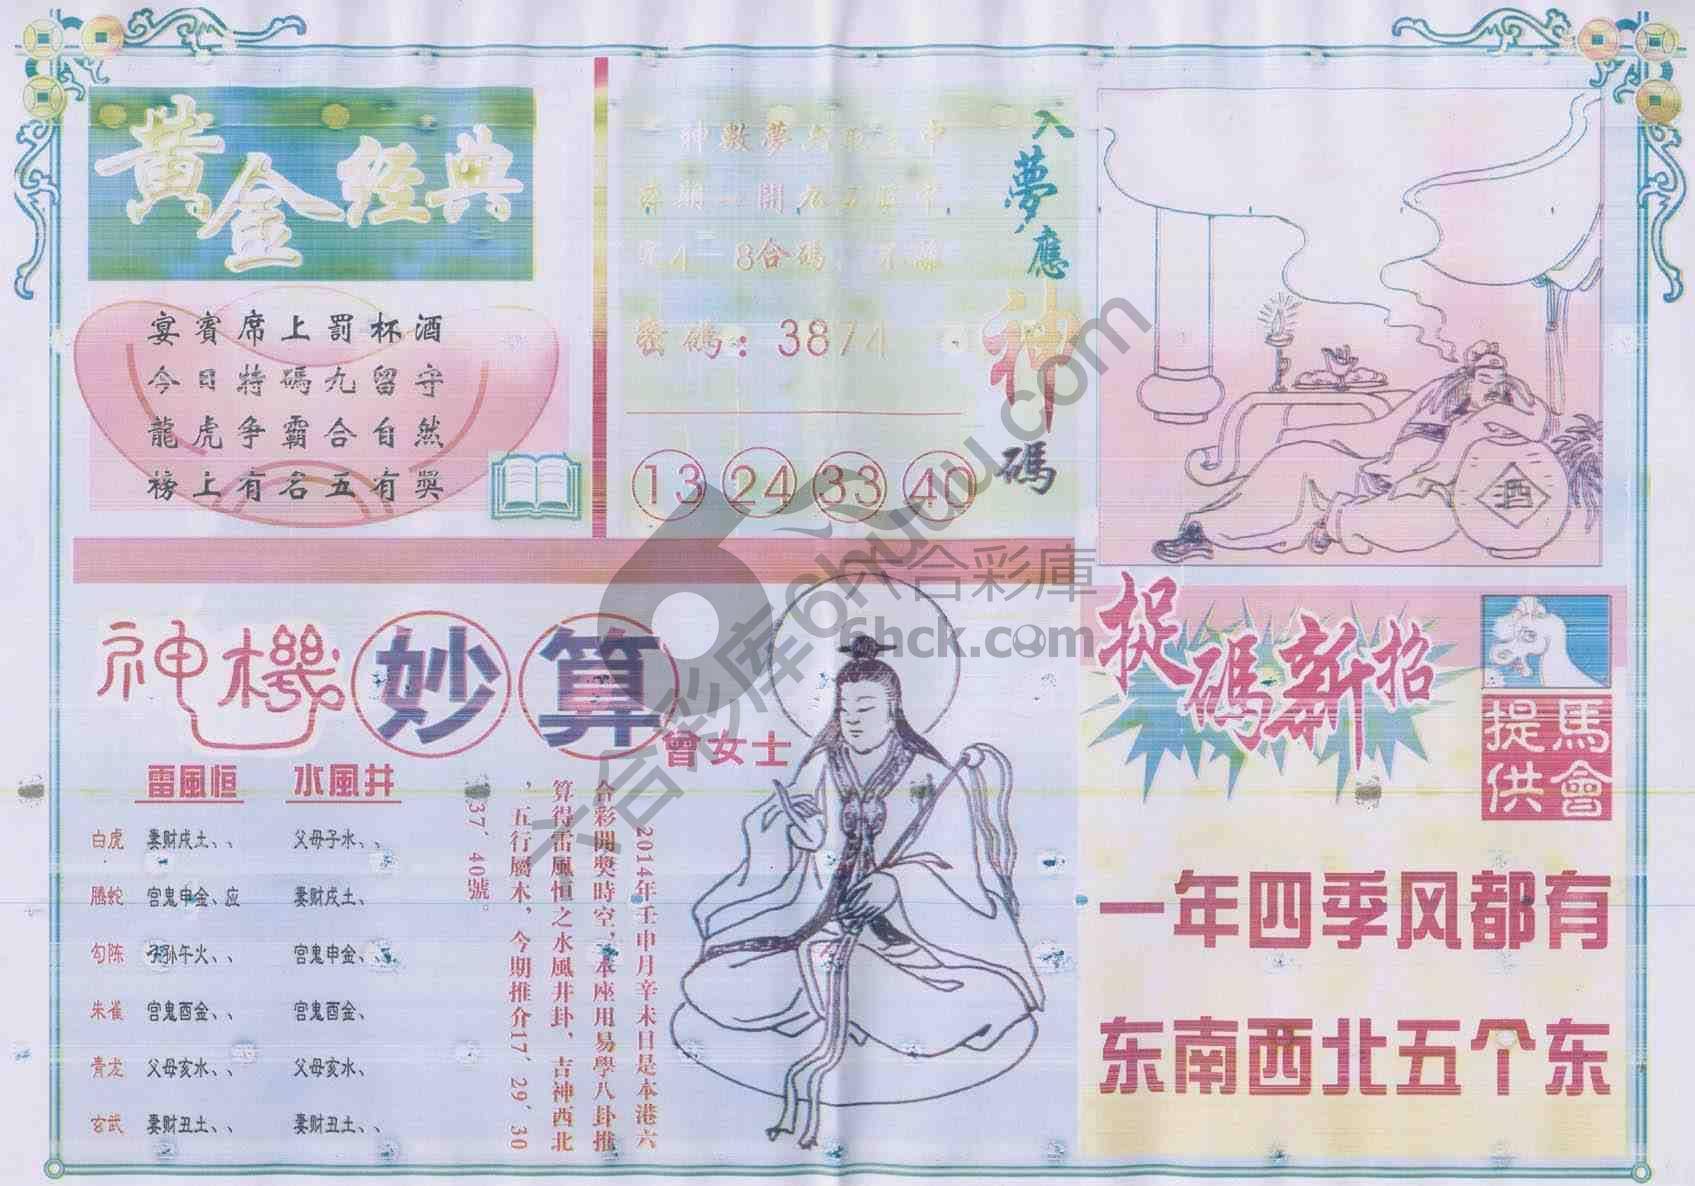 黄金經典
宴賓席上罰杯酒
今日特碼九留守
龍虎争霸合自然
榜上有名五有獎
入夢應神碼
密碼：3874
13 24 33 40
酒
神機妙算
曾女士
雷風恒 水風井
白虎 妻财戌土、、 父母子水、、
腾蛇 官鬼申金、应 妻财戌土、
勾陈 子孙午火、、 官鬼申金、
朱雀 官鬼酉金、、 官鬼酉金、
青龙 父母亥水、、 父母亥水、
玄武 妻财丑土、、 妻财丑土、、
2014年壬申月辛未日是本港六
合彩開獎時空，本座用易學八卦推
算得雷風恒之水風井卦，吉神西北
，五行屬木，今期推介17、29、30
、37、40號。
捉碼新招
馬會提供
一年四季风都有
东南西北五个东
六合彩庫
6hck.com
六合彩库6huku.com